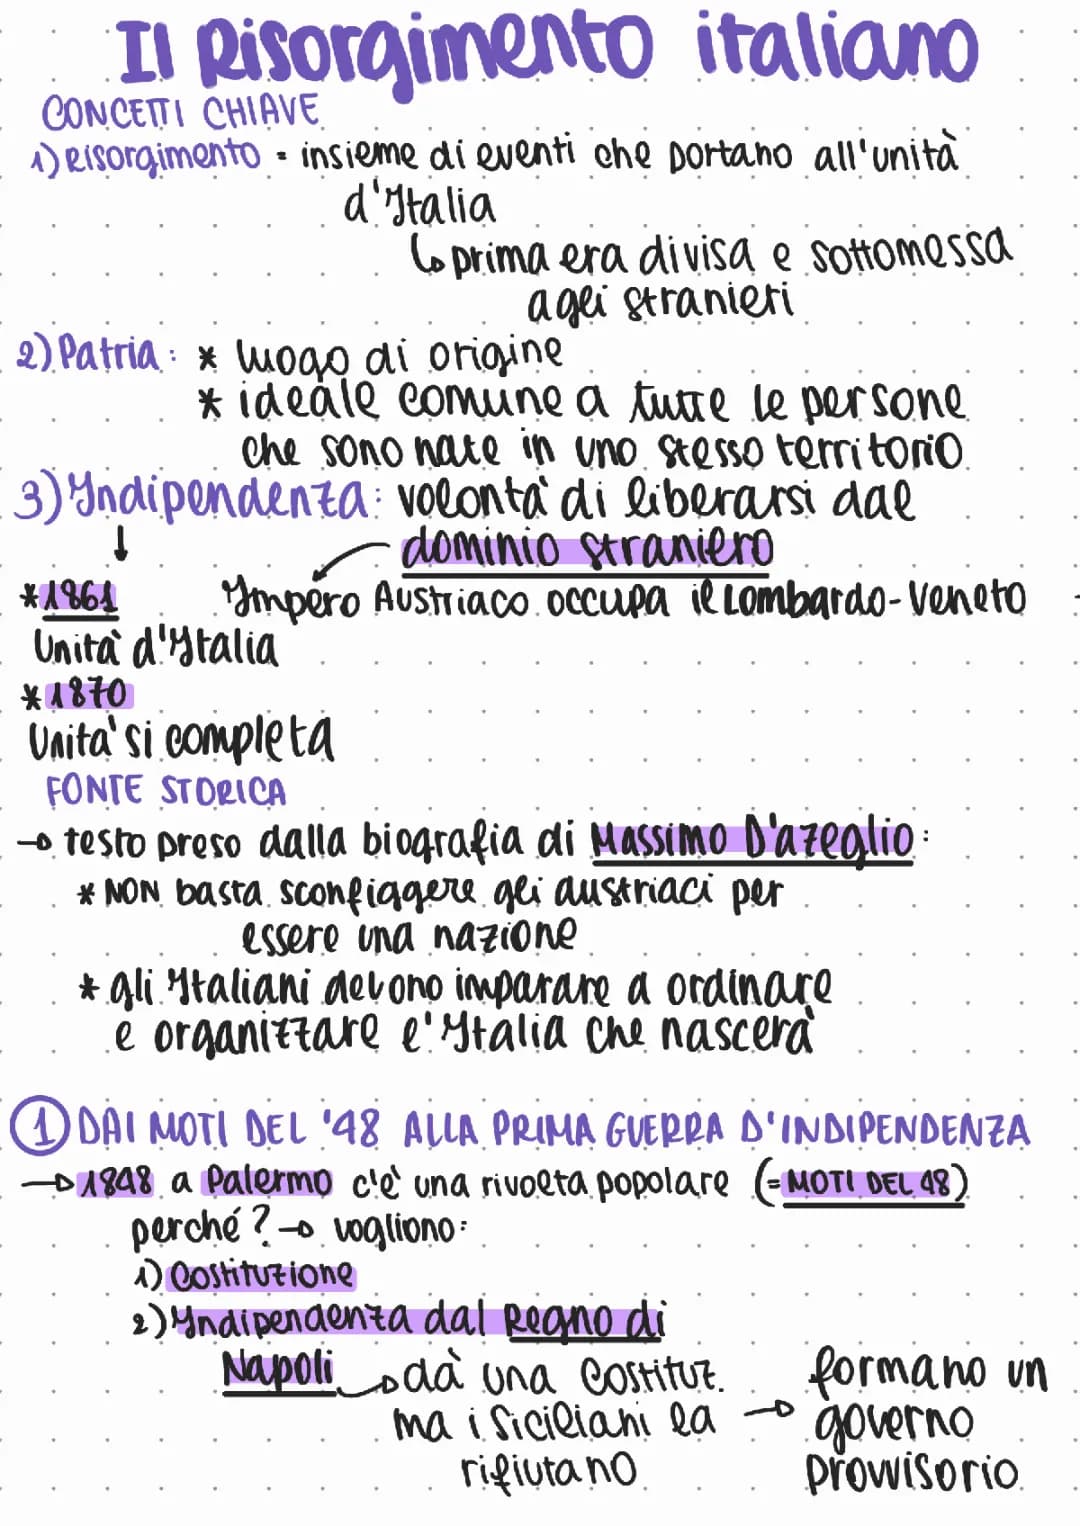 Il Risorgimento italiano
CONCETTI CHIAVE
1) Risorgimento = insieme di eventi che portano all'unità
d'Italia
↳ prima era divisa e sottomessa
agli stranieri
2) Patria: * luogo di origine
* ideale comune a tutte le persone
che sono nate in uno stesso territorio
3) Indipendenza: volontà di liberarsi dal
↓ dominio straniero
*1861 Impero Austriaco occupa il Lombardo-Veneto
Unità d'Italia
*1870
Unità si completa
FONTE STORICA
→ testo preso dalla biografia di Massimo D'azeglio:
* NON basta sconfiggere gli austriaci per
essere una nazione
* gli Italiani devono imparare a ordinare
e organizzare l'Italia che nascerà
① DAI MOTI DEL '48 ALLA PRIMA GUERRA D'INDIPENDENZA
→ 1848 a Palermo c'è una rivolta popolare (= MOTI DEL 48)
perché? → vogliono:
1) Costituzione
2) Indipendenza dal Regno di
Napoli → dà una Costituz. formano un
ma i Siciliani la → governo
rifiutano provvisorio